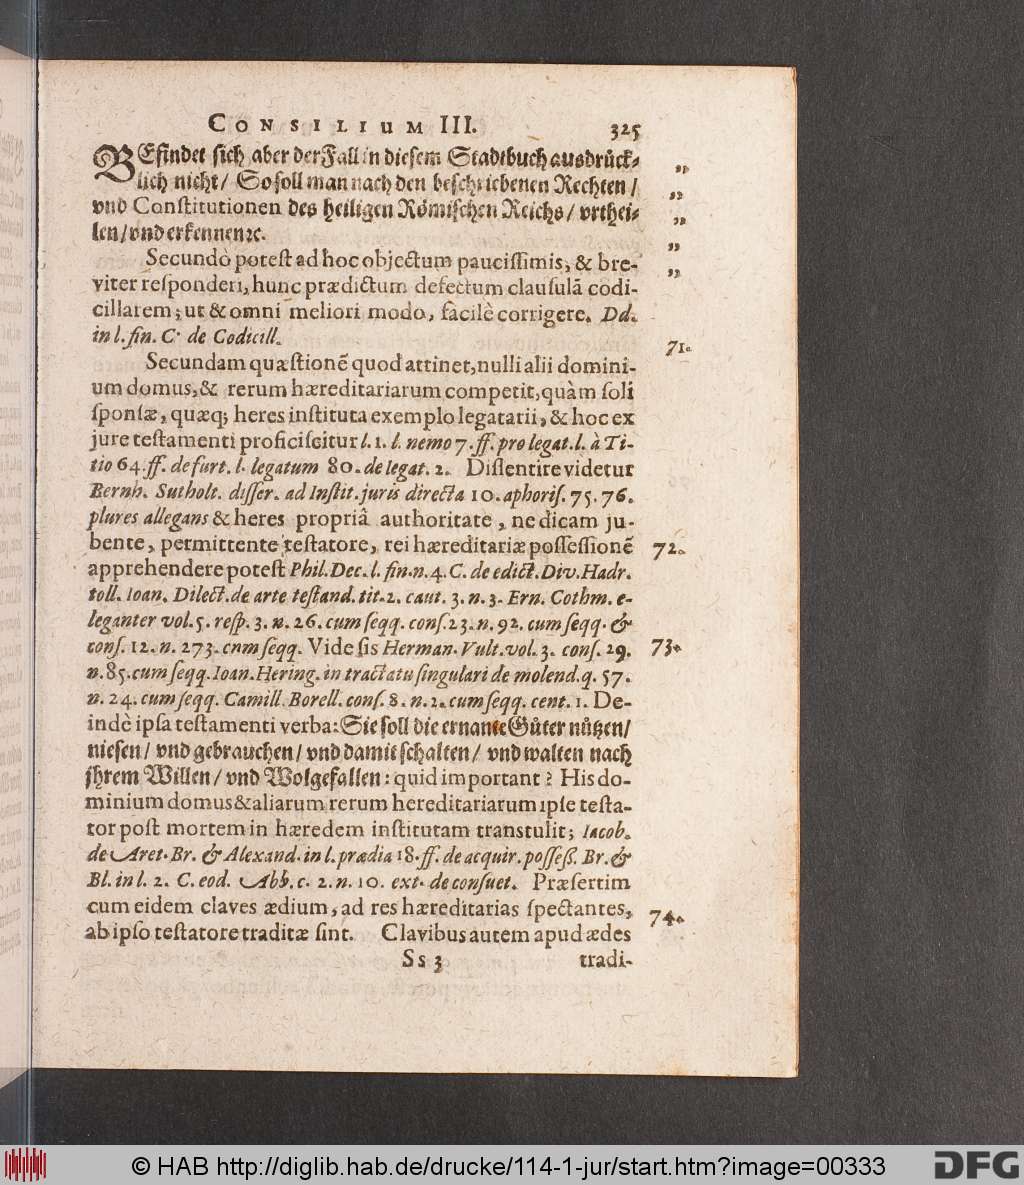 CONSILIUM III. 325
BEfindet sich aber der Fall in diesem Stadtbuch ausdrůck-
lich nicht/ So soll man nach den beschriebenen Rechten/
vnd Constitutionen des heiligen Römischen Reichs/ vrthei-
len/ vnd erkennen ꝛc.
Secundò potest ad hoc objectum paucissimis, & bre-
viter responderi, hunc prædictum defectum clausulā codi-
cillarem; ut & omni meliori modo, facilè corrigere. Dd.
in l. fin. C. de Codicill.
71.
Secundam quæstionẽ quod attinet, nulli alii domini-
um domus, & rerum hæreditariarum competit, quàm soli
sponsæ, quæq; heres instituta exemplo legatarii, & hoc ex
jure testamenti proficiscitur l. 1. l. nemo 7. ff. pro legat. l. à Ti-
tio 64. ff. de furt. l. legatum 80. de legat. 2. Dissentire videtur
Bernh. Sutholt. disser. ad Instit. juris directa 10. aphoris. 75. 76.
plures allegans & heres propriâ authoritate, ne dicam ju-
bente, permittente testatore, rei hæreditariæ possessionẽ 72.
apprehendere potest Phil. Dec. l. fin. n. 4. C. de edict. Div. Hadr.
toll. Ioan. Dilect. de arte testand. tit. 2. caut. 3. n. 3. Ern. Cothm. e-
leganter vol. 5. resp. 3. n. 26. cum seqq. cons. 23. n. 92. cum seqq. &
cons. 12. n. 273. cnm seqq. Vide sis Herman. Vult. vol. 3. cons. 29. 73.
n. 85. cum seqq. Ioan. Hering. in tractatu singulari de molend. q. 57.
n. 24. cum seqq. Camill. Borell. cons. 8. n. 2. cum seqq. cent. 1. De-
indè ipsa testamenti verba: Sie soll die ernante Gůter nůtzen/
niesen/ vnd gebrauchen/ vnd damit schalten/ vnd walten nach
jhrem Willen/ vnd Wolgefallen: quid important? His do-
minium domus & aliarum rerum hereditariarum ipse testa-
tor post mortem in hæredem institutam transtulit; Iacob.
de Aret. Br. & Alexand. in l. prædia 18. ff. de acquir. posseß. Br. &
Bl. in l. 2. C. eod. Abb. c. 2. n. 10. ext. de consuet. Præsertim
cum eidem claves ædium, ad res hæreditarias spectantes, 74.
ab ipso testatore traditæ sint. Clavibus autem apud ædes
Ss 3 tradi-
© HAB http://diglib.hab.de/drucke/114-1-jur/start.htm?image=00333
DFG